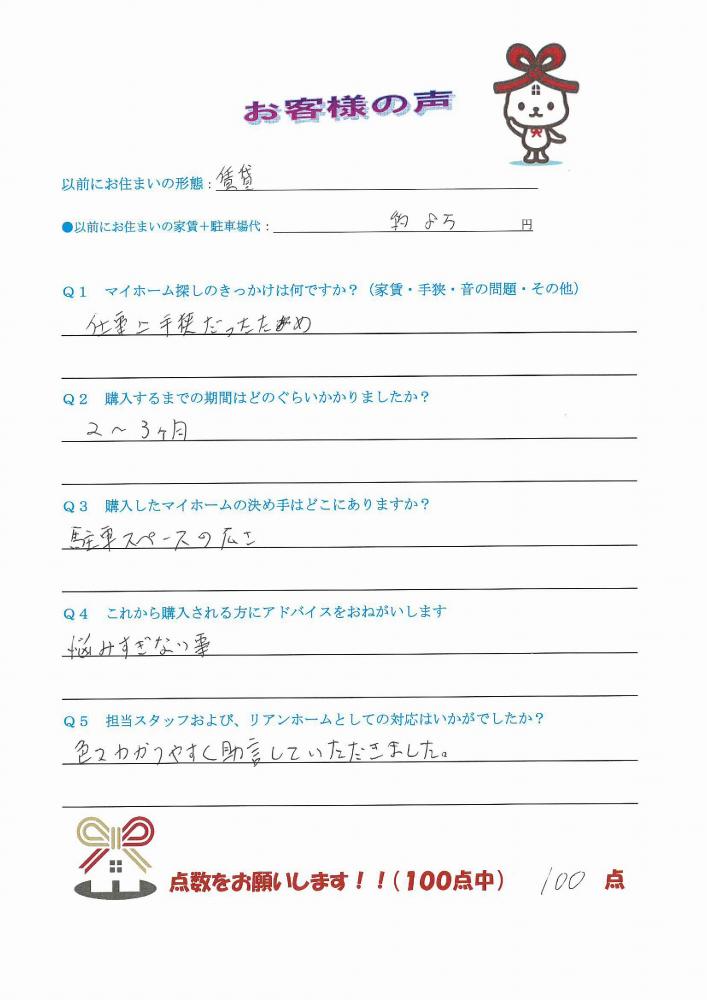 お客様の声
以前にお住まいの形態：賃貸
●以前にお住まいの家賃＋駐車場代： 約 8万 円
Q1 マイホーム探しのきっかけは何ですか？（家賃・手狭・音の問題・その他）
仕事と手狭だったため
Q2 購入するまでの期間はどのぐらいかかりましたか？
2～3ヶ月
Q3 購入したマイホームの決め手はどこにありますか？
駐車スペースの広さ
Q4 これから購入される方にアドバイスをおねがいします
悩みすぎない事
Q5 担当スタッフおよび、リアンホームとしての対応はいかがでしたか？
色々わかりやすく助言していただきました。
点数をお願いします！！（100点中） 100 点